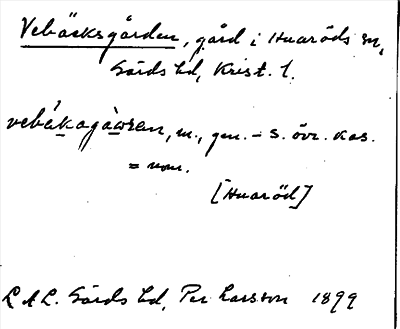 Vebäcksgården, gård i Huaröds sn,
Gärds hd, Krist. l.
m., gen. - s. övr. kas.
= nom.
[Huaröd]
L A L. Gärds hd, Per Larsson 1899